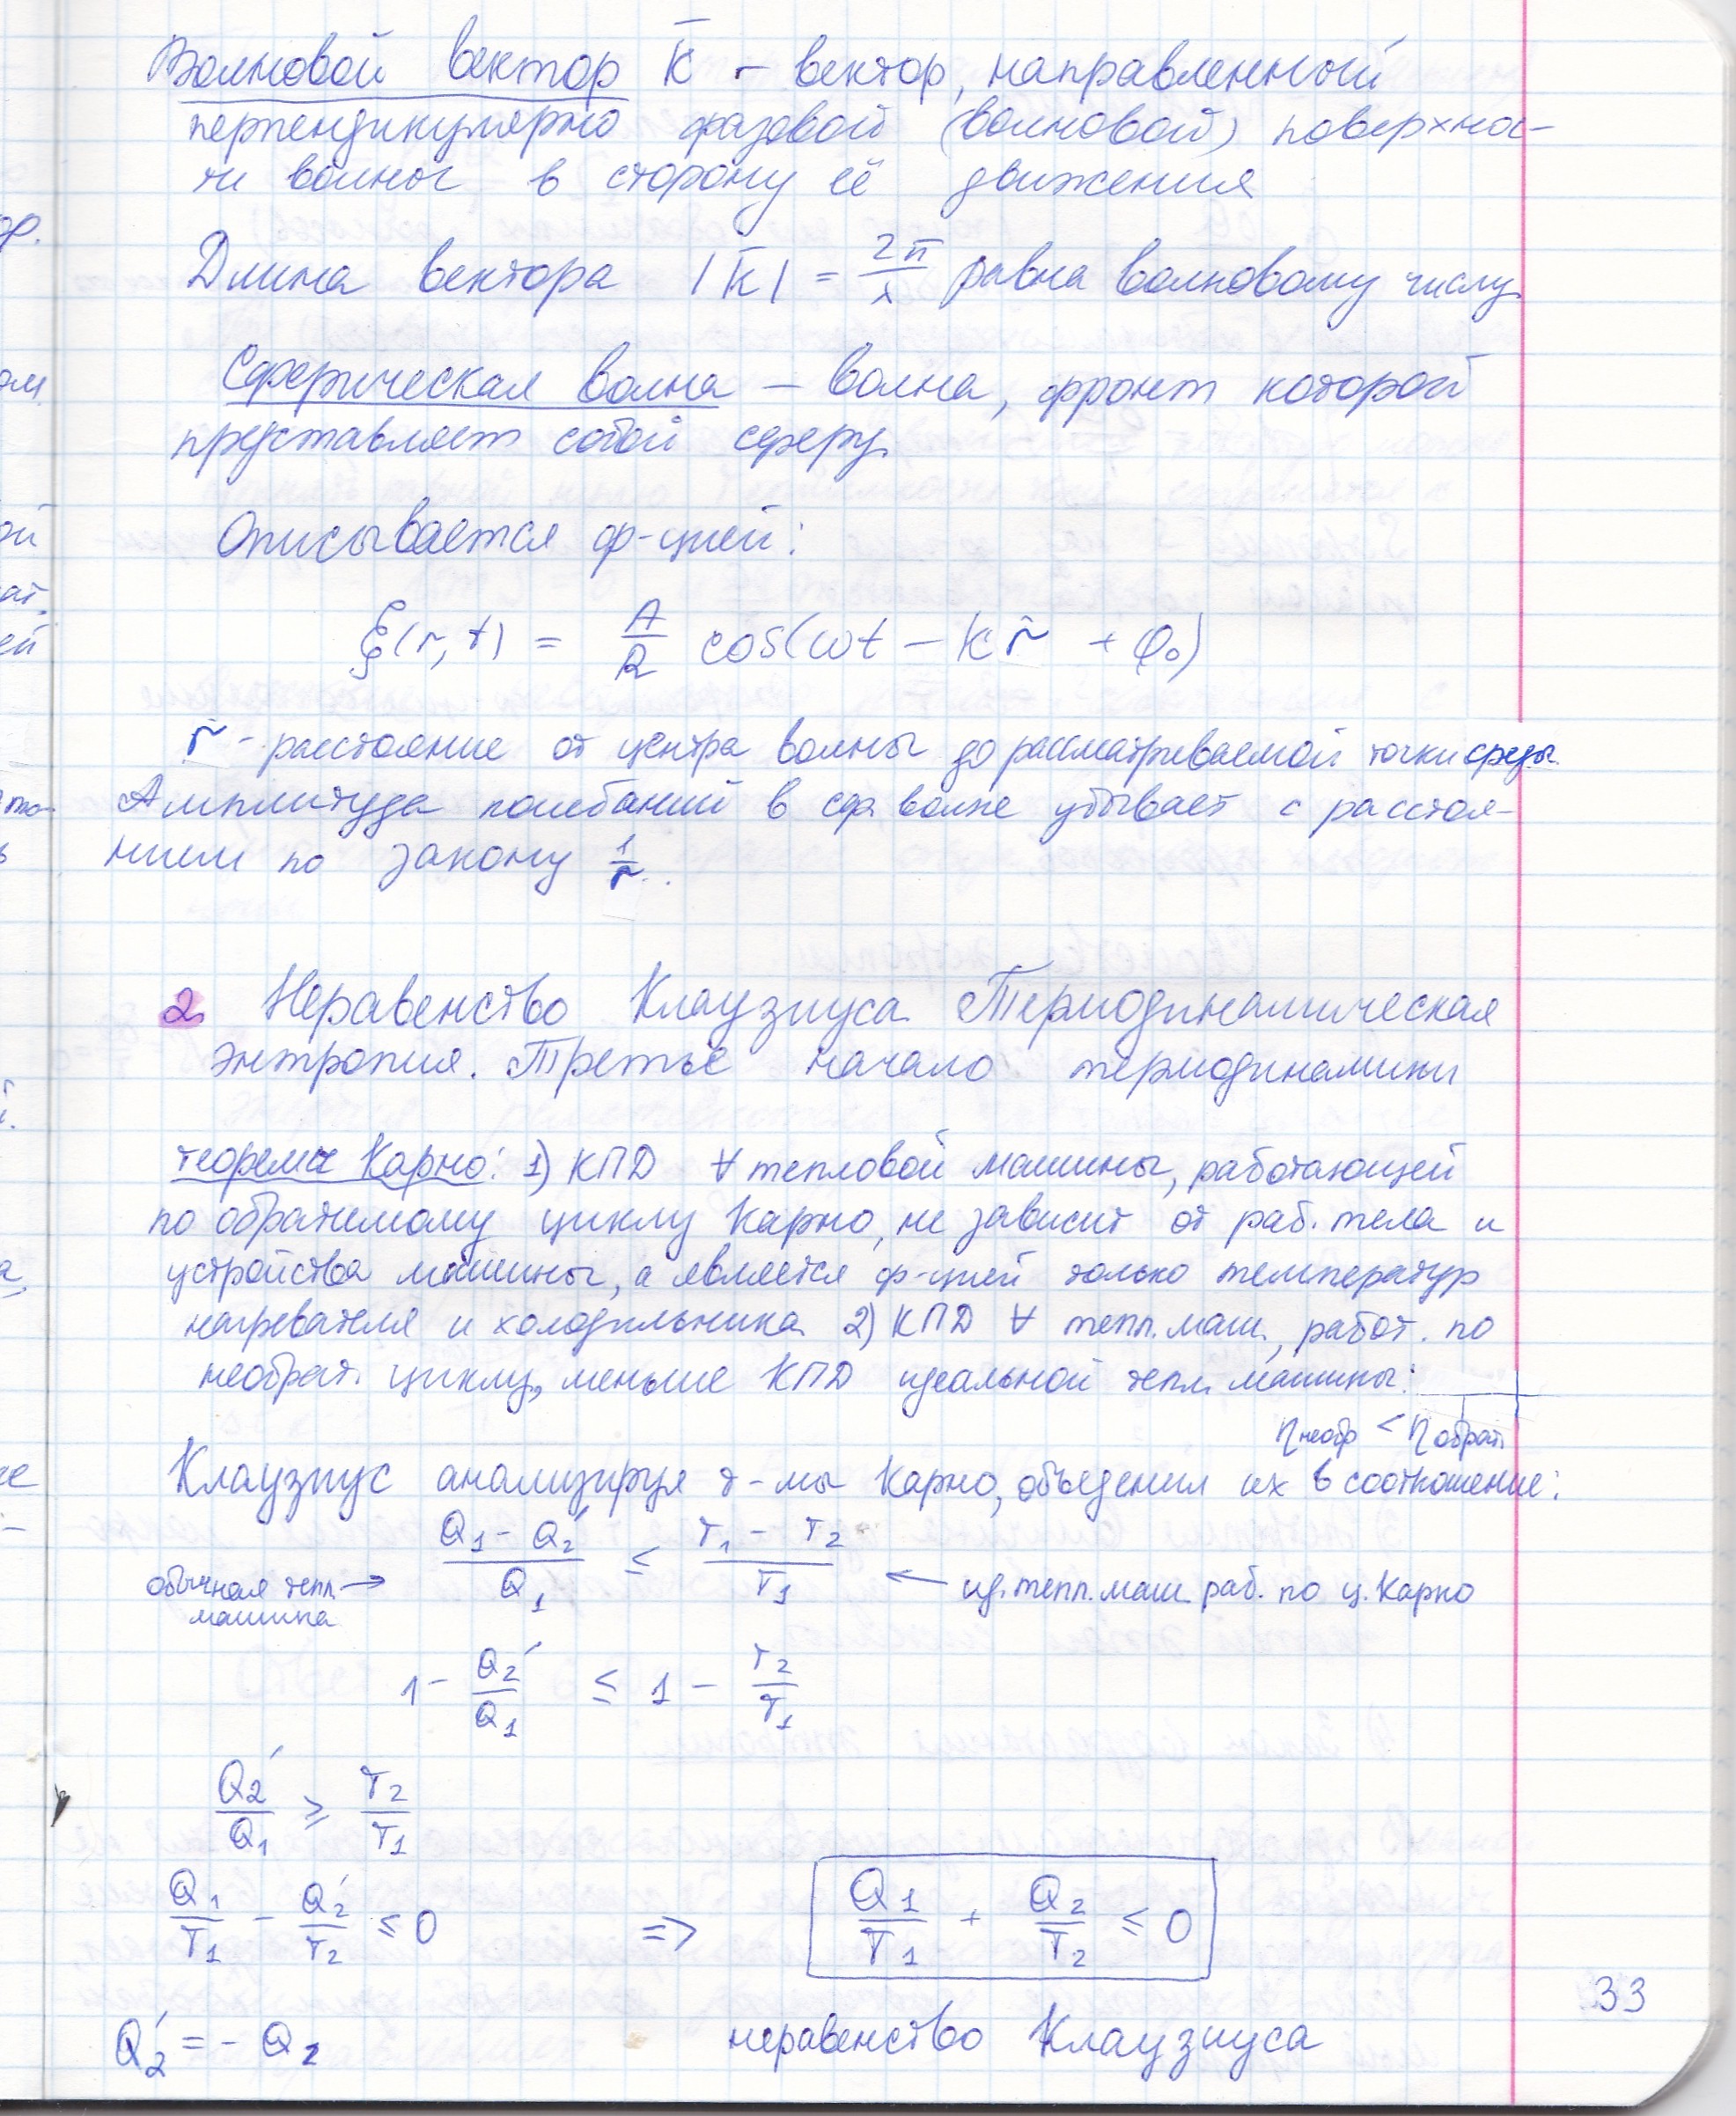 Волновой вектор k̄ - вектор, направленный
перпендикулярно фазовой (волновой) поверхнос-
ти волны в сторону её движения
Длина вектора |k̄| = 2π/λ равна волновому числу
Сферическая волна - волна, фронт которой
представляет собой сферу
Описывается ф-цией:
ξ(r, t) = A/R cos(ωt - kr̃ + φ₀)
r - расстояние от центра волны до рассматриваемой точки среды
Амплитуда колебаний в сф. волне убывает с расстоя-
нием по закону 1/r.
2. Неравенство Клаузиуса. Термодинамическая
энтропия. Третье начало термодинамики
теорема Карно: 1) КПД ∀ тепловой машины, работающей
по обратимому циклу Карно, не зависит от раб. тела и
устройства машины, а является ф-цией только температур
нагревателя и холодильника. 2) КПД ∀ тепл. маш., работ. по
необрат. циклу, меньше КПД идеальной тепл. машины:
ηнеобр < ηобрат.
Клаузиус анализируя т-мы Карно, объеденил их в соотношение:
обычная тепл. машина → (Q₁ - Q₂′)/Q₁ ≤ (T₁ - T₂)/T₁ ← ид. тепл. маш. раб. по ц. Карно
1 - Q₂′/Q₁ ≤ 1 - T₂/T₁
Q₂′/Q₁ ≥ T₂/T₁
Q₁/T₁ - Q₂′/T₂ ≤ 0 => Q₁/T₁ + Q₂/T₂ ≤ 0
33
Q₂′ = - Q₂ неравенство Клаузиуса